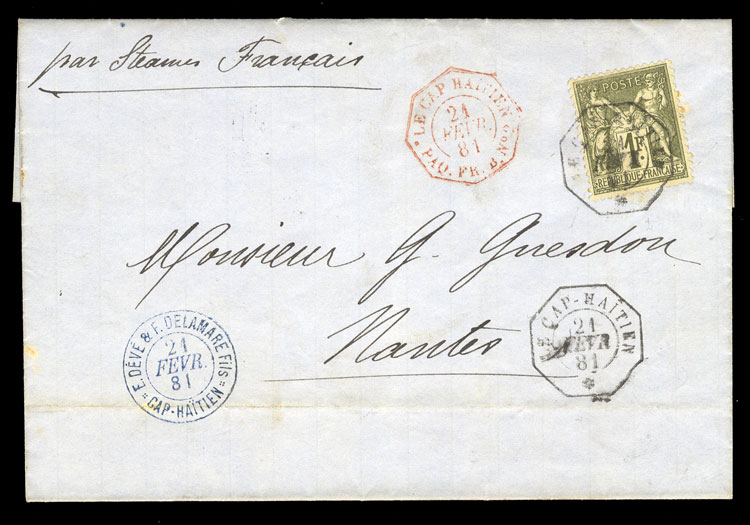 par Steamer Français
LE CAP HAITIEN
21
FEVR.
81
PAQ. FR. B. No N
POSTE
1F
REPUBLIQUE FRANÇAISE
Monsieur G. Guesdon
Nantes
LE CAP-HAÏTIEN
21
FEVR
81
*
E. DÉVÉ & F. DELAMARE Fils
21
FEVR.
81
= CAP-HAÏTIEN =